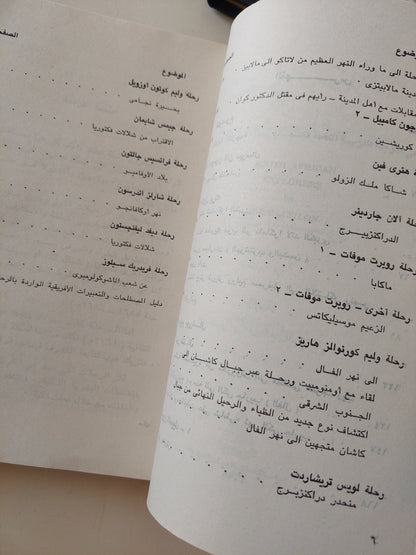 الموضوع
رحلة الى ما وراء النهر العظيم من لاتاكو الى مالابيل
مدينة مالابيتزى
مقابلات مع أهل المدينة – رأيهم فى مقتل الدكتور كوان
جون كامبيل – ٢
كوريشين
رحلة هنرى فين
شاكا ملك الزولو
رحلة الان جاردينر
الدراكنزبيرج
رحلة روبرت موفات – ١
ماكابا
رحلة أخرى – روبرت موفات – ٢
الزعيم موسيليكاتس
رحلة وليم كورنوالز هاريز
الى نهر الفال
لقاء مع أومنومبيت ورحلة عبر جبال كاشان إلى
الجنوب الشرقى
اكتشاف نوع جديد من الظباء والرحيل النهائى من جبل
كاشان متجهين الى نهر الفال
رحلة لويس تريشاردت
منحدر دراكنزبرج
٦
الصفحة
الموضوع
رحلة وليم كوتون اوزويل
بحيرة نجامى
رحلة جيمس شابمان
الاقتراب من شلالات فكتوريا
رحلة فرانسيس جالتون
بلاد الاوفامبو
رحلة شارلز اندرسون
نهر اوكافانجو
رحلة ديفد ليفنجستون
شلالات فكتوريا
رحلة فريدريك سيلوز
عن شعب الماشوكولومبوى
دليل المصطلحات والتعبيرات الأفريقية الواردة بالرحلات